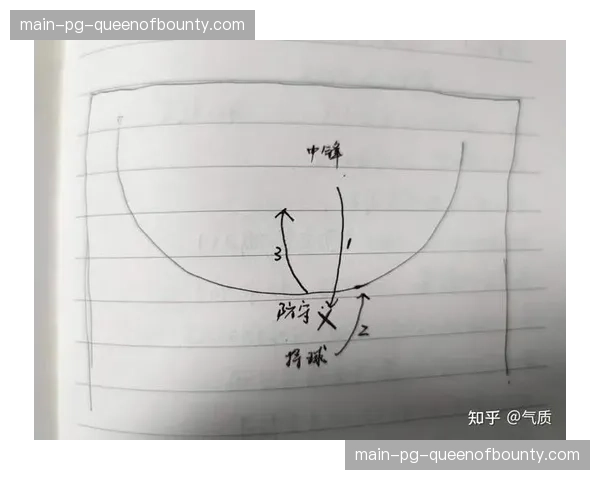 main-pg-queenofbounty.com
中锋
1
3
防守
持球
2
知乎 @气质
main-pg-queenofbounty.com